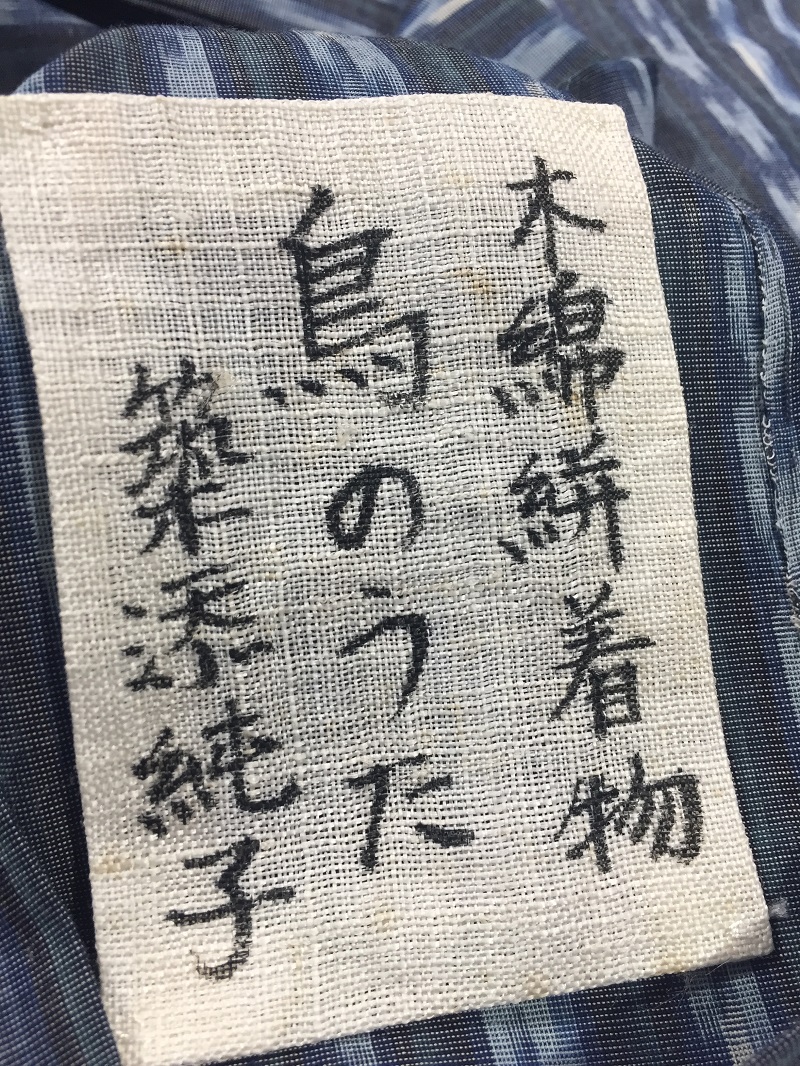 木綿絣着物
鳥のうた
築添純子